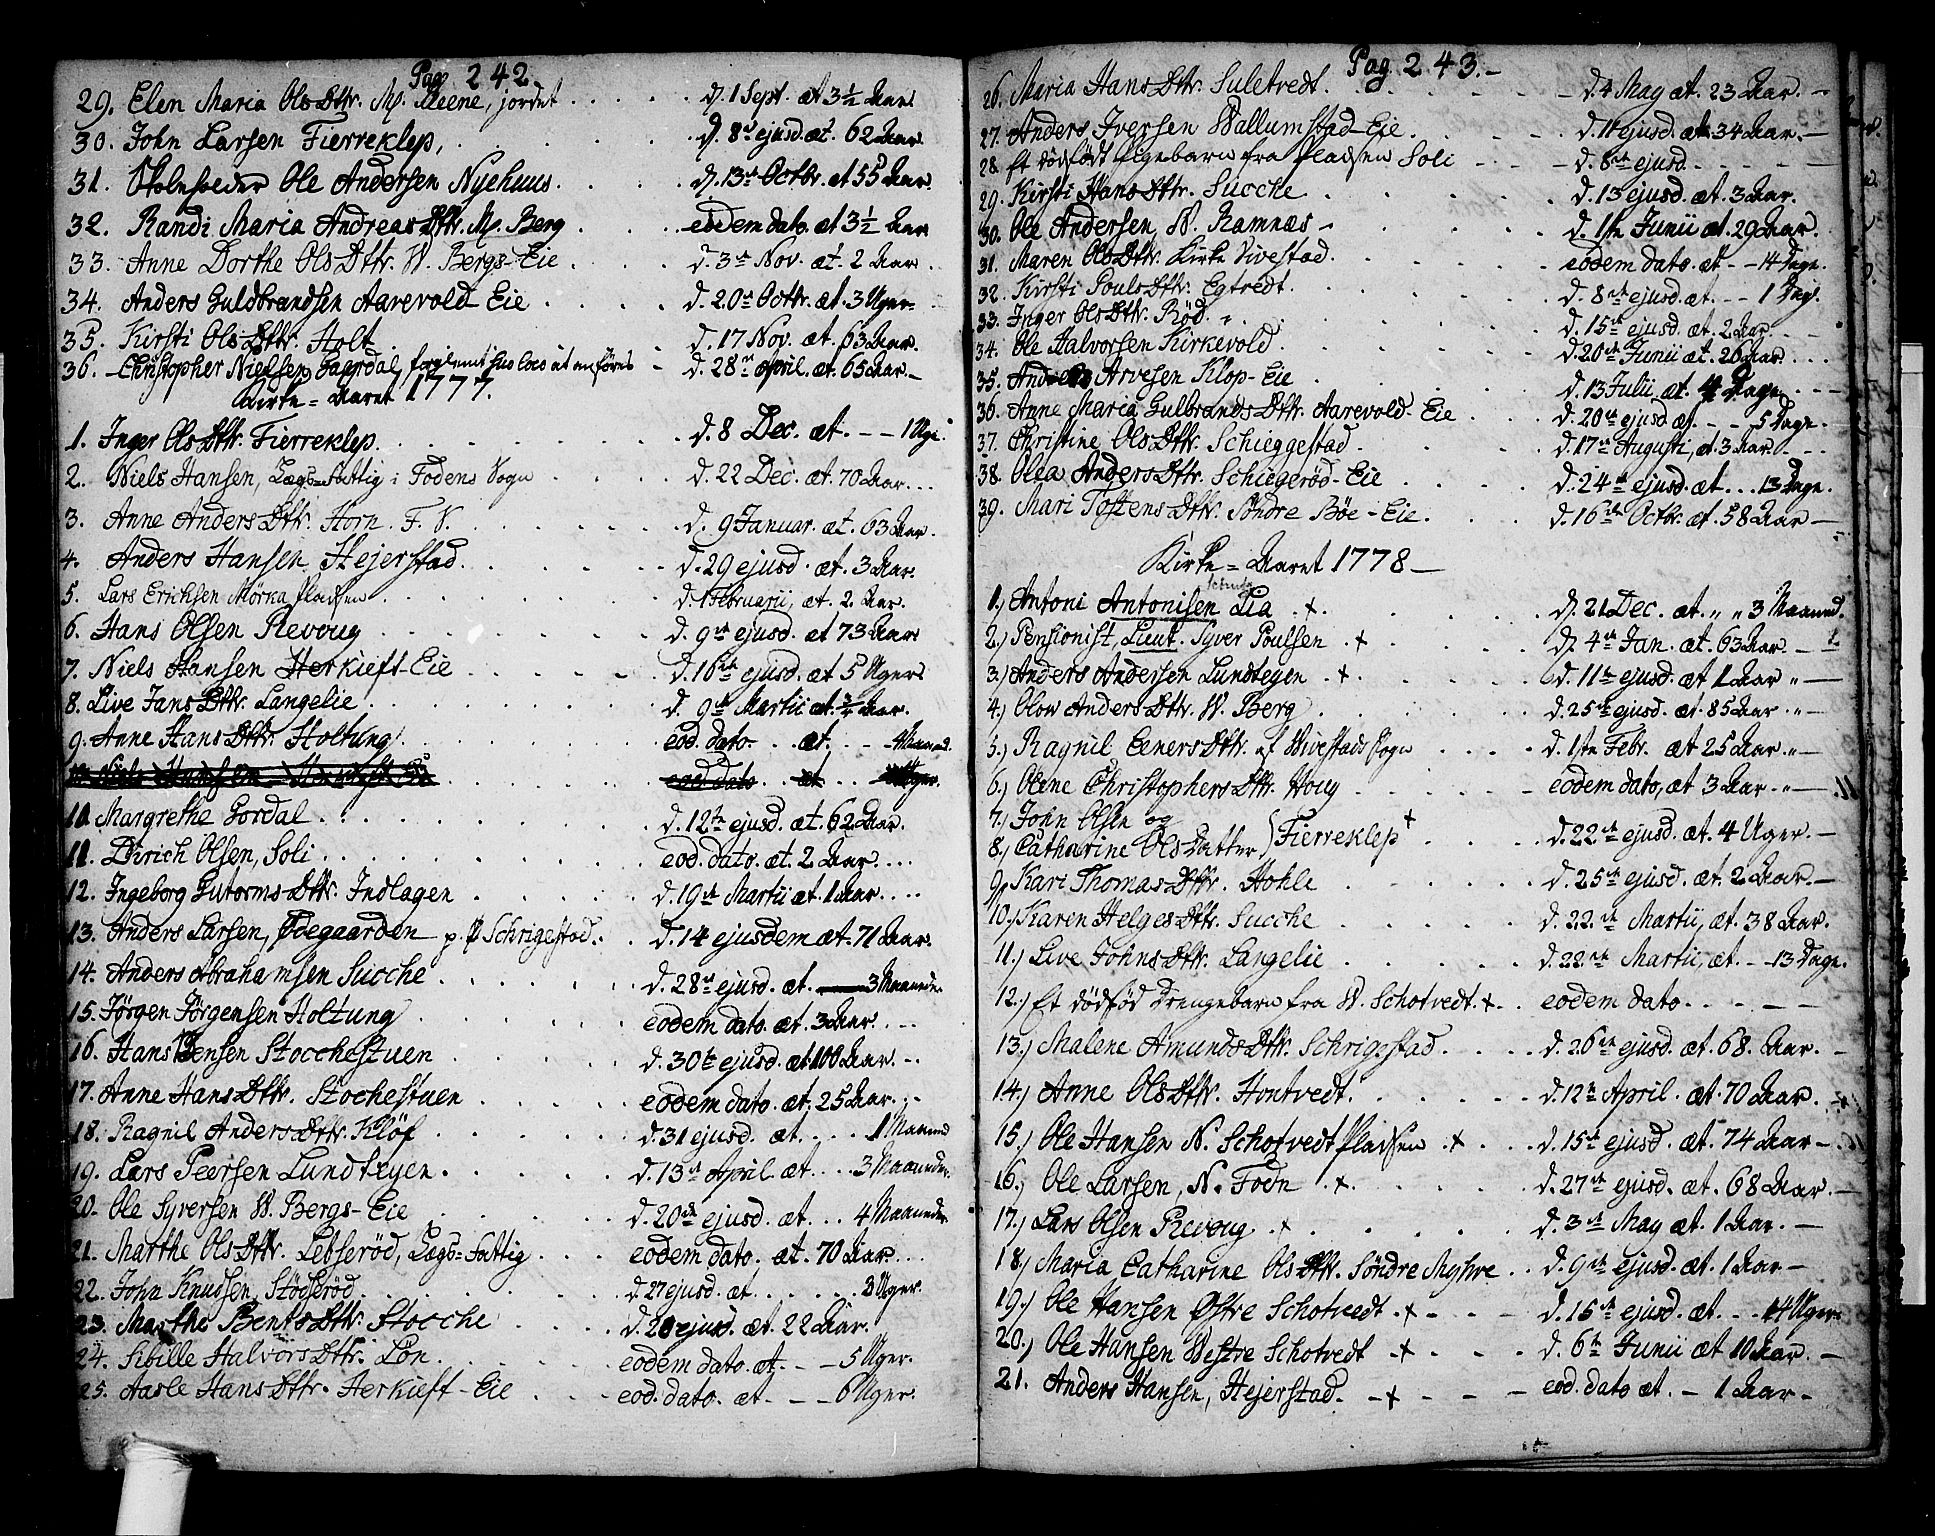 Pag 242.
29. Elen Maria OlsDttr. Mp. Reene, jordet . . . . . d. 1 Sept. æt 3½ Aar.
30. John Larsen Fierreklep, . . . . . d. 8de ejusd. æt. 62 Aar.
31. Skoleholder Ole Andersen Nyehuus. . . . . d. 13de Octbr. æt 55 Aar.
32. Randi Maria AndreasDttr. Mp. Berg . . . . eodem dato. æt 3½ Aar
33. Anne Dorthe OlsDttr. W. Bergs-Eie . . . . d. 3de Nov. æt. 2 Aar.
34. Anders Guldbrandsen Aarevold-Eie . . . . d. 20de Octbr. æt. 3 Uger.
35. Kirsti OlsDttr. Holt . . . . . d. 17 Nov. æt. 63 Aar.
36. Christopher Nielsen Gaardal, forglemt suo loco at anføres - d. 28de April. æt. 65 Aar.
Kirke-Aaret 1777.
1. Inger OlsDttr. Fierreklep. . . . . . d. 8 Dec. æt. - - 1 Uge.
2. Niels Hansen, Lægs-Fattig i Fodens Sogn . . . . d. 22 Dec. æt. 70 Aar...
3. Anne AndersDttr. Horn. F. V. . . . . d. 9 Januar. æt. 63 Aar.
4. Anders Hansen Hejerstad. . . . . d. 29 ejusd. æt. 3 Aar.
5. Lars Erichsen Mørka Pladsen . . . . . d. 1 Februarii, æt. 2. Aar.
6. Hans Olsen Revoug . . . . . d. 9de ejusd. æt 73 Aar
7. Niels Hansen Herkieft-Eie . . . . . d. 16de ejusd. æt 5 Uger
8. Live JansDttr. Langelie . . . . . d. 9de Martii æt. ¾ Aar.
9. Anne HansDttr. Holtung . . . . . eod. dato. . . æt. - - 4 Maaned.
10. Niels Hansen Herkieft Eie . . . . . eod. dato æt Uger.
10 Margrethe Gordal . . . . . d. 12te ejusd. æt. 62 Aar.
11. Dirich Olsen, Soli . . . . . eod. dato. æt. 2 Aar....
12. Ingeborg GutormsDttr. Indlagen . . . . d. 19de Martii æt. 1 Aar....
13. Anders Larsen, Ødegaarden p. Ø Schrigestad. . . d. 14 ejusdem æt. 71 Aar.
14. Anders Abrahamsen Sucche . . . . . d. 28de ejusd. æt. 3 Maaneder
15. Jørgen Jørgensen Holtung . . . . . eodem dato. æt. 3 Aar....
16. Hans Bensen Stocchestuen . . . . d. 30te ejusd. æt 100 Aar...
17. Anne HansDttr. Stochestuen . . . . eodem dato. æt. 25 Aar...
18. Ragnil AndersDttr. Kløf . . . . . d. 31 ejusd. æt. . . . 1 Maaned
19. Lars Peersen Lundteyen. . . . . d. 13de April. æt. . . 3 Maaneder.
20. Ole Syversen W. Bergs-Eie . . . . d. 20de ejusd. æt. . . 4 Maaneder
21. Marthe OlsDttr. Lebserød, Lægs-Fattig . . . eodem dato. æt. 70 Aar...
22. John Knudsen, Stødserød . . . . . d. 27 ejusd. æt . . . . 3 Uger.
23. Marthe BentsDttr. Stocche . . . . d. 28 ejusd. æt. 22 Aar.
24. Sibille HalvorsDttr. Løn. . . . . eodem dato. æt. - - 5 Uger.
25. Aasle HansDttr. Herkieft-Eie . . . . eod. dato. æt - - - 6 Uger.
Pag 243.-
26. Maria HansDttr. Suletvedt. . . . . - d. 4 May æt. 23 Aar. -
27. Anders Iversen Wallumstad-Eie. . . . - d. 11 ejusd. æt 34 Aar. -
28. Et dødfødt Pigebarn fra Pladsen Soli - - - - d. 8de ejusd. - - - -
29. Kirsti HansDttr. Sucche . . . . . d. 13 ejusd. æt. 3 Aar.
30. Ole Andersen, W. Ramnæs - . . . . d. 1te Junii æt. 29 Aar.
31. Maren OlsDttr. Kirke Vivestad. . . . . eodem dato. æt - - 14 Dage.
32. Kirsti PoulsDttr. Egtvedt. . . . . d. 8de ejusd. æt. - - 1 Dag.
33. Inger OlsDttr. Rød. . . . . . d. 15de ejusd. æt. 2 Aar
34. Ole Halvorsen Kirkevold . . . . . d. 20de Junii æt. 26 Aar. . . .
35. Anders Arvesen Klop-Eie . . . . . d. 13 Julii æt. 4 Dage. . . .
36. Anne Maria GulbrandsDttr. Aarevold-Eie . . . d. 20de ejusd. æt. - - 5 Dage.
37. Christine OlsDttr. Schieggestad. . . . . d. 17de Augusti, æt. 3 Aar. - - -
38. Olea AndersDttr. Schiegerød-Eie . . . . d. 24de ejusd. æt. . . . 13 Dage.
39. Mari TostensDttr. Søndre Bøe-Eie. . . . d. 16de Octbr. æt. 58 Aar -
Kirke-Aaret 1778 -
1.) Antoni Antonisen Lia . + . . . . d. 21 Dec. æt. " " 3 Maaned.
2.) Pensionist, Lieut. Syver Poulsen + . . . d. 4de Jan. æt. 63 Aar. - 1.
3.) Anders Andersen Lundteyen . + . . . d. 11te ejusd. æt 1 Aar " -
4.) Olow AndersDttr. W. Berg . . . . . d. 25de ejusd. æt. 85 Aar. " -
5.) Ragnil EenersDttr. af Wivestads Sogn . . . . d. 1te Febr. æt 25 Aar. " -
6.) Olene ChristophersDttr. Houg . . . . eodem dato, æt 3 Aar. " -
7.) John Olsen og
8.) Catharine OlsDatter } Fierreklep + . . . . d. 22de ejusd. æt. 4 Uger. -
9.) Kari ThomasDttr. Hohle . . . . . d. 25de ejusd. æt. 2 Aar. -
10.) Karen HelgesDttr. Sucche . . . . . d. 22de Martii, æt. 38 Aar.
11.) Live JohnsDttr. Langelie . . . . . d. 22de Martii, æt. - - 13 Dage.
12.) Et dødfød Drengebarn fra W. Schotvedt. + . . eodem dato - - - -
13.) Malene AmundsDttr. Schrigstad. . . . . d. 26de ejusd. æt. 68. Aar. -
14.) Anne OlsDttr. Hontvedt. . . . . . d. 12te April. æt. 70 Aar. .
15.) Ole Hansen N. Schotvedt Pladsen . + . . d. 15de ejusd. æt. 74 Aar -
16.) Ole Larsen, N. Fodn . + . . . . d. 27de ejusd. æt. 68 Aar. -
17.) Lars Olsen Revoug . + . . . . d. 3de May æt. 1 Aar. -
18.) Maria Catharine OlsDttr. Søndre Myhre . . d. 9de ejusd. æt. 1 Aar -
19.) Ole Hansen Østre Schotvedt . + - - - d. 16de ejusd. æt. - - 14 Uger.
20.) Ole Hansen Westre Schotvedt - + . - - d. 6te Junii æt 10 Aar. -
21. Anders Hansen, Hejerstad. - + - - - eod. dato æt. - 1 Aar -